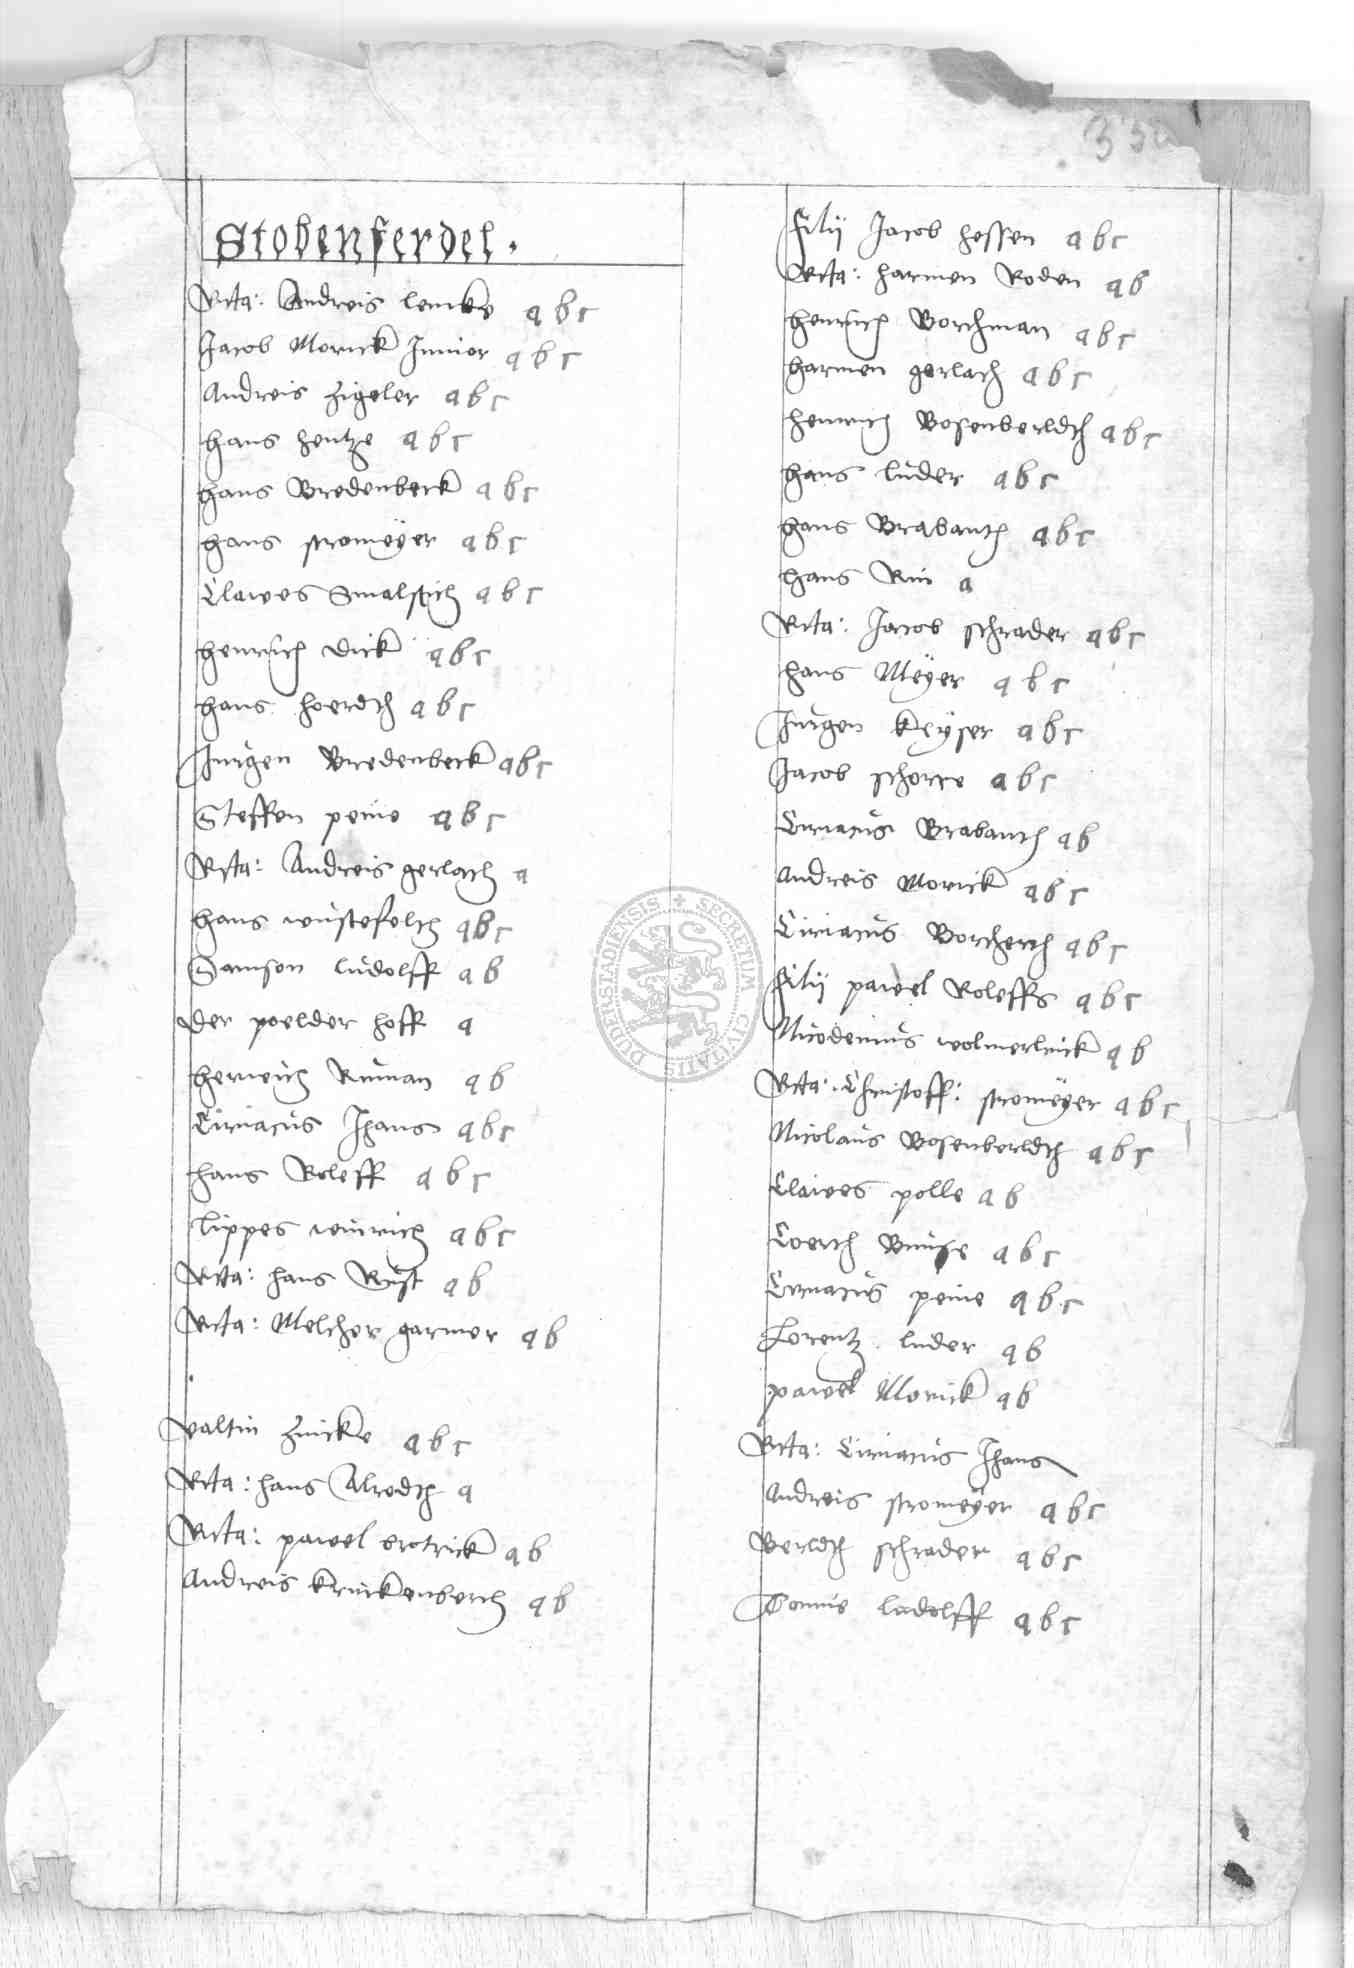 Stobenferdel.
Rcta: Andreis lemke a b c
Jacob Morick Junior a b c
Andreis Zigeler a b c
Hans Hentze a b c
Hans Bredenbeck a b c
Hans stromeÿer a b c
Clawes Smalstich a b c
Henrich Dick a b c
Hans Hoerdth a b c
Jurgen Bredenbeck a b c
Steffen peine a b c
Rcta: Andreis gerlach a
Hans wustefelth a b c
Samson ludolff a b
Der poelder hoff a
Herwich Ruman a b
Ciriacus Jhans a b c
Hans Roleff a b c
Lippes winrich a b c
Rcta: Hans Rust a b
Rcta: Melcher garmer a b
Valtin Zincke a b c
Rcta: Hans Alrodth a
Rcta: pawel a b
Andreis kruckenberch a b
Filij Jacob Hessen a b c
Rcta: Harmen Roden a b
Henrich Borchman a b c
Harmen gerlach a b c
Henrich Bosenberldth a b c
Hans luder a b c
Hans Brabanth a b c
Hans Rin a
Rcta: Jacob schrader a b c
Hans Meÿer a b c
Jurgen keÿser a b c
Jacob schorre a b c
Ciriacus Brabanth a b
Andreis Morick a b c
Ciriacus Borcherth a b c
Filij pawel Roleffs a b c
Nicodemus wolmerhuck a b
Rcta: Christoff: stromeÿer a b c
Nicolaus Bosenberldth a b c
Clawes polle a b
Coerth Bunse a b c
Ciriacus peine a b c
Lorentz luder a b
pawel Morick a b
Rcta: Ciriacus Jhans
Andreis stromeÿer a b c
Berldth schrader a b c
Tonnis ludolff a b c
SECRETUM CIVITATIS DUDERSTADIENSIS